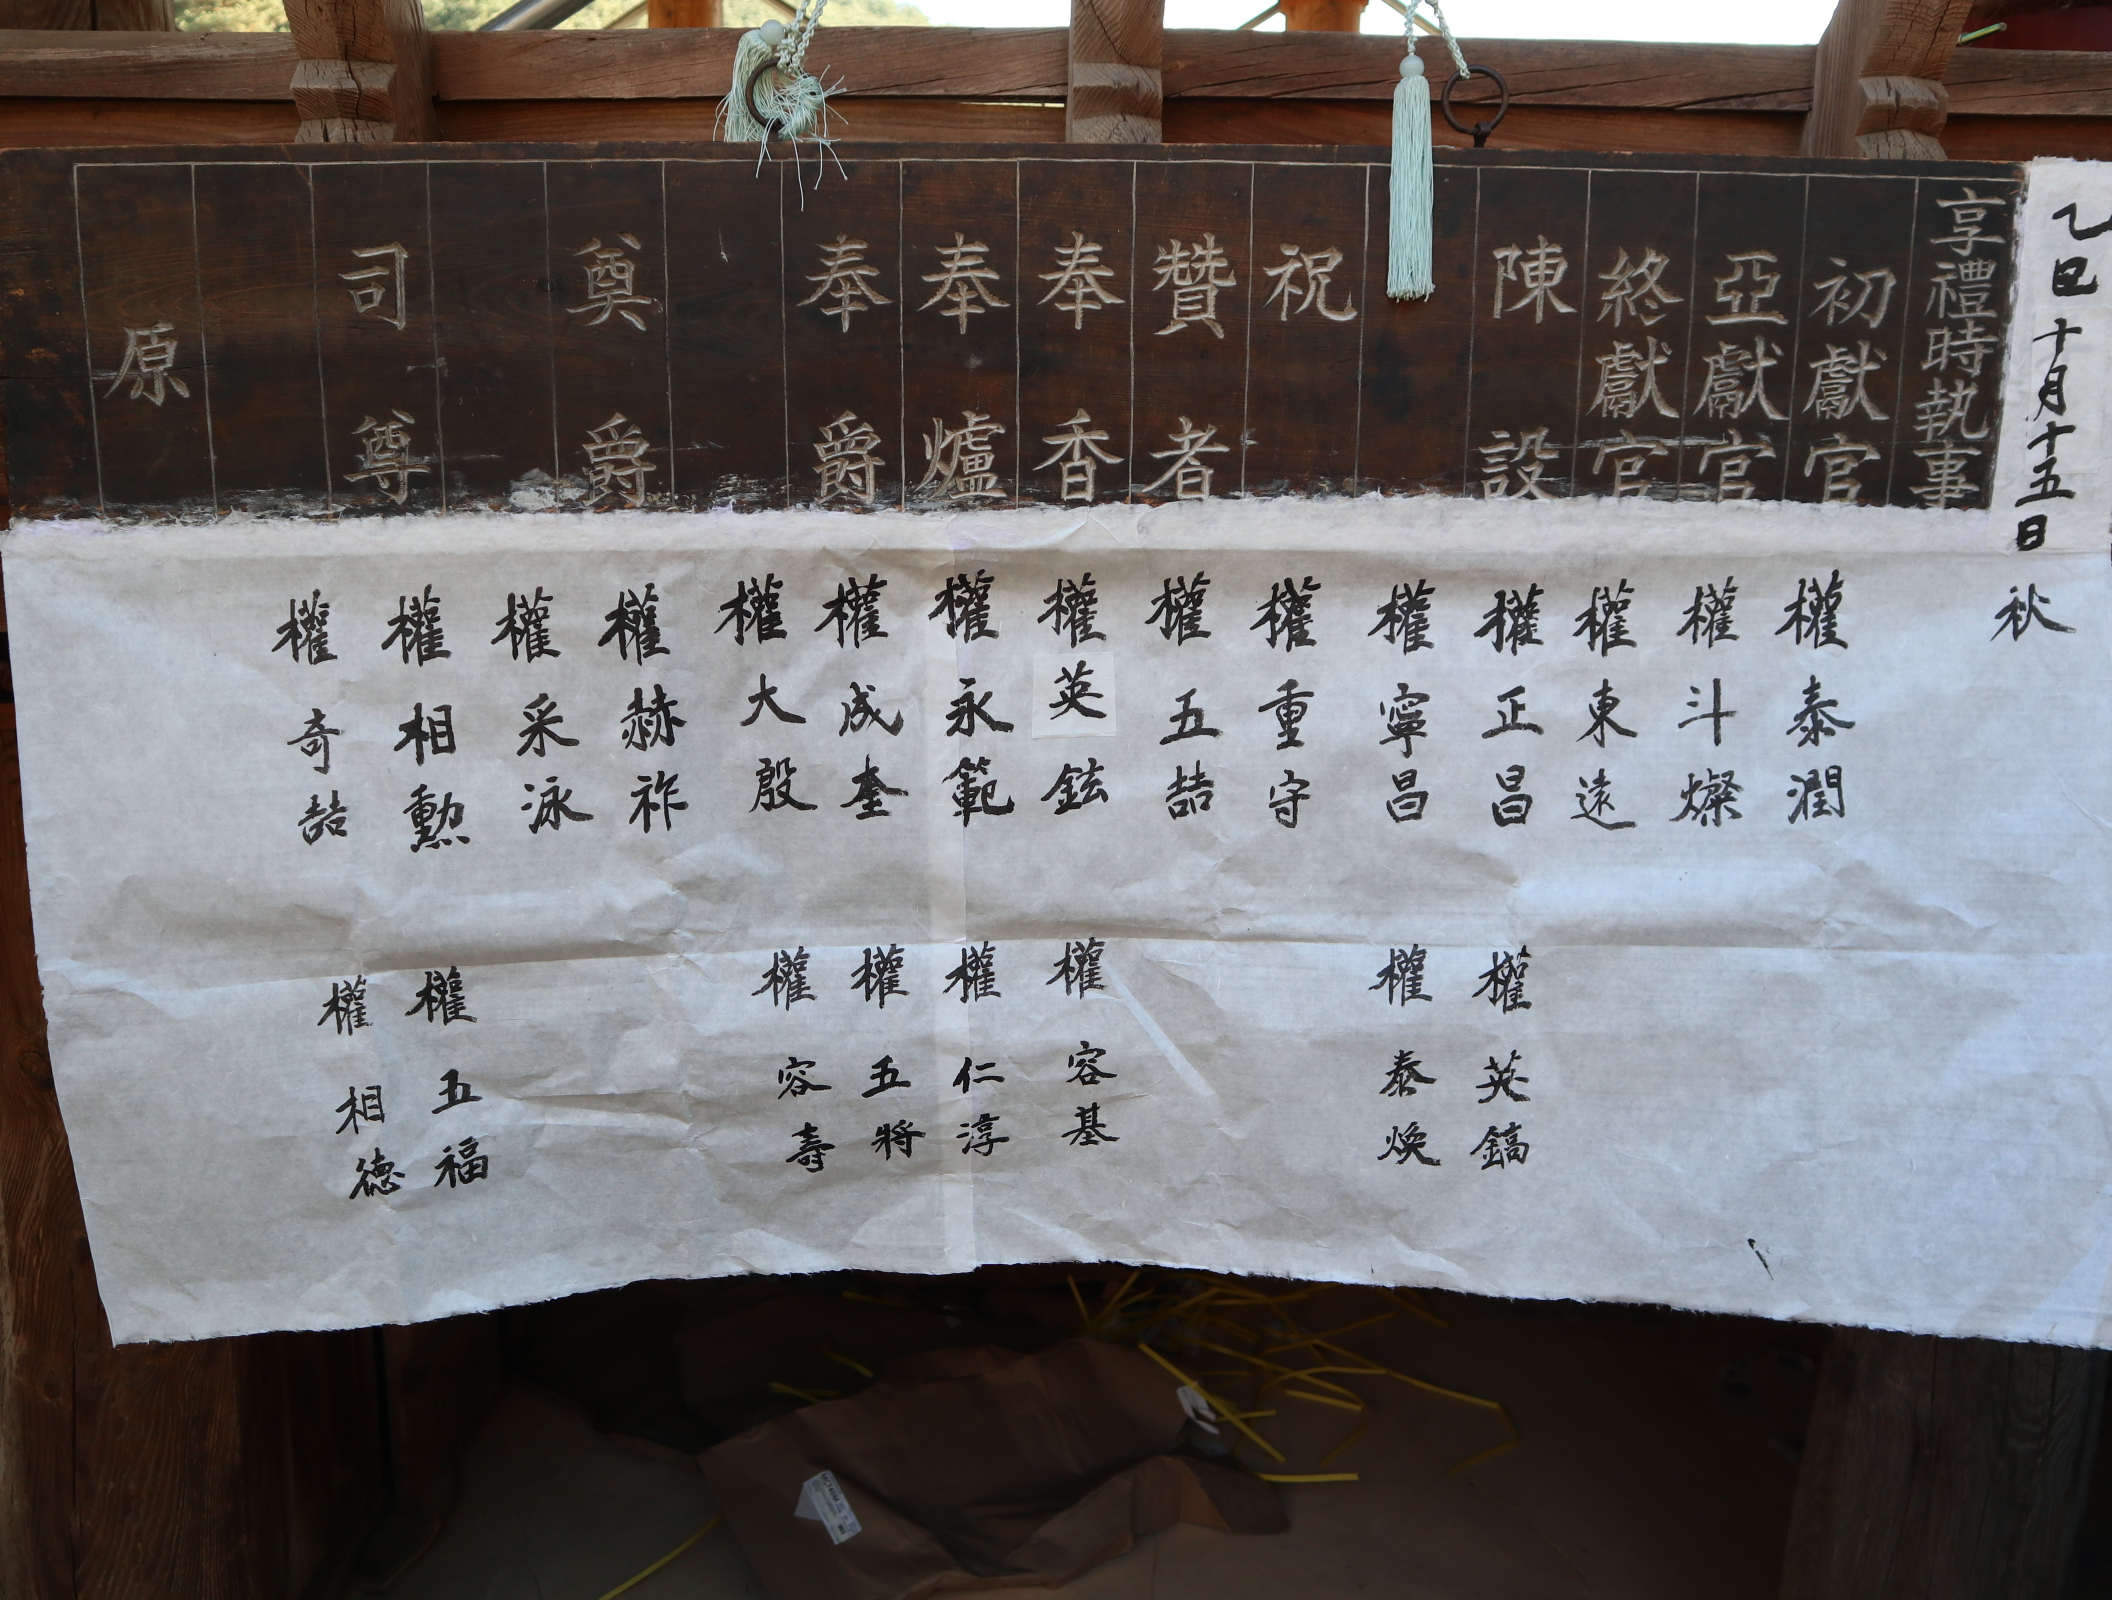 乙巳十月十五日
秋
享禮時執事
初獻官
亞獻官
終獻官
陳設
祝
贊者
奉香
奉爐
奉爵
奠爵
司尊
原
權泰潤
權斗燦
權東遠
權正昌
權寧昌
權重守
權五喆
權英鉉
權永範
權成奎
權大殷
權赫祚
權采泳
權相勳
權奇喆
權英鎬
權泰煥
權容基
權仁淳
權五將
權容壽
權五福
權相德